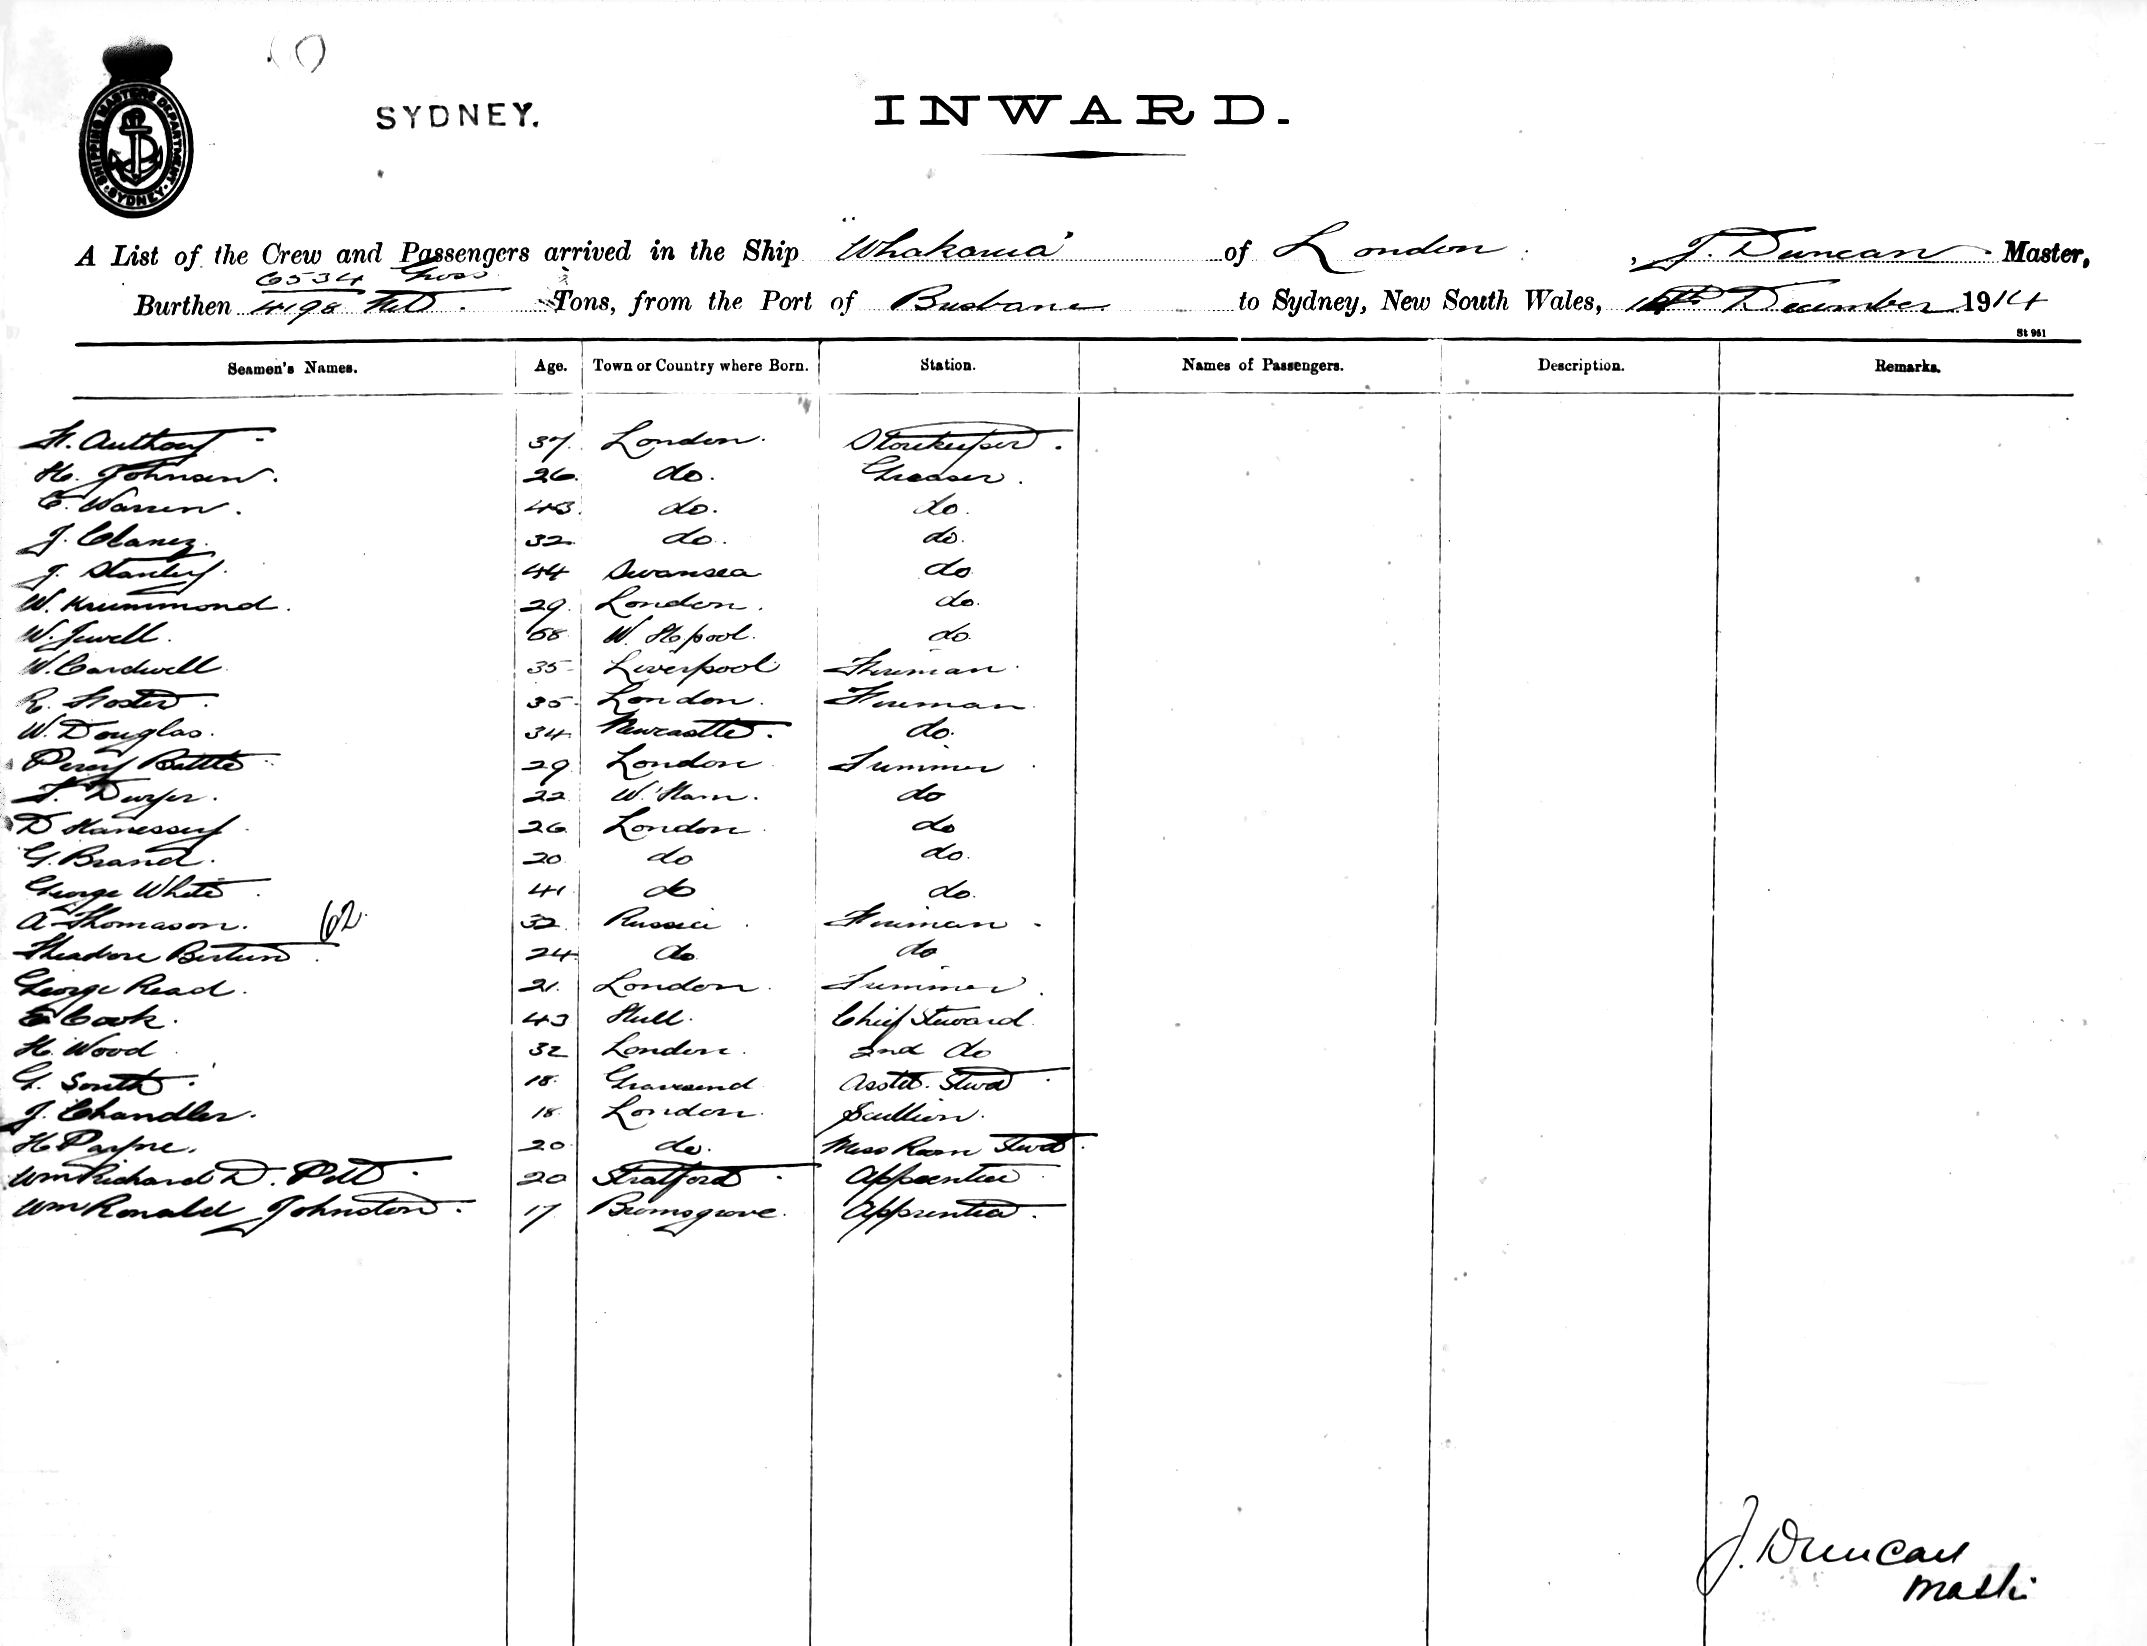 SHIPPING MASTERS DEPARTMENT SYDNEY
SYDNEY.
INWARD.
A List of the Crew and Passengers arrived in the Ship "Whakarua" of London, J. Duncan Master,
6534 Gross
Burthen 4198 Net Tons, from the Port of Brisbane to Sydney, New South Wales, December 1914
St 961
Seamen's Names. Age. Town or Country where Born. Station. Names of Passengers. Description. Remarks.
Anthony 37 London. Storekeeper.
H. Johnson. 26 do. Greaser.
Warren. 43. do. do.
J. 32 do. do.
J. Stanley 44 Swansea do
W. Krummond. 29 London. do.
W. Jewell. 58 W. H'pool. do
W. Cardwell 35 Liverpool Fireman.
R. Foster. 35 London. Fireman
W. Douglas. 34 Newcastle. do.
Percy Battle 29 London Trimmer
T. Dwyer. 22 W. Ham. do
D Hanessey 26 London do
G. Brand. 20 do do.
George White 41 do do.
A Thomason. 62 32 Russia Fireman
Theadore 24 do do
George Read. 21. London. Trimmer.
E Cook. 43 Hull. Chief Steward.
H. Wood 32 London. 2nd do
G. South. 18. Gravesend Asstt. Stwd
J. Chandler. 18. London. Scullion.
H Payne. 20 do. Mess Room Stwd.
Wm Richard D. Pitt. 20 Stratford. Apprentice
Wm Ronald Johnston. 17 Bromsgrove. Apprentice.
J. Duncan
Master